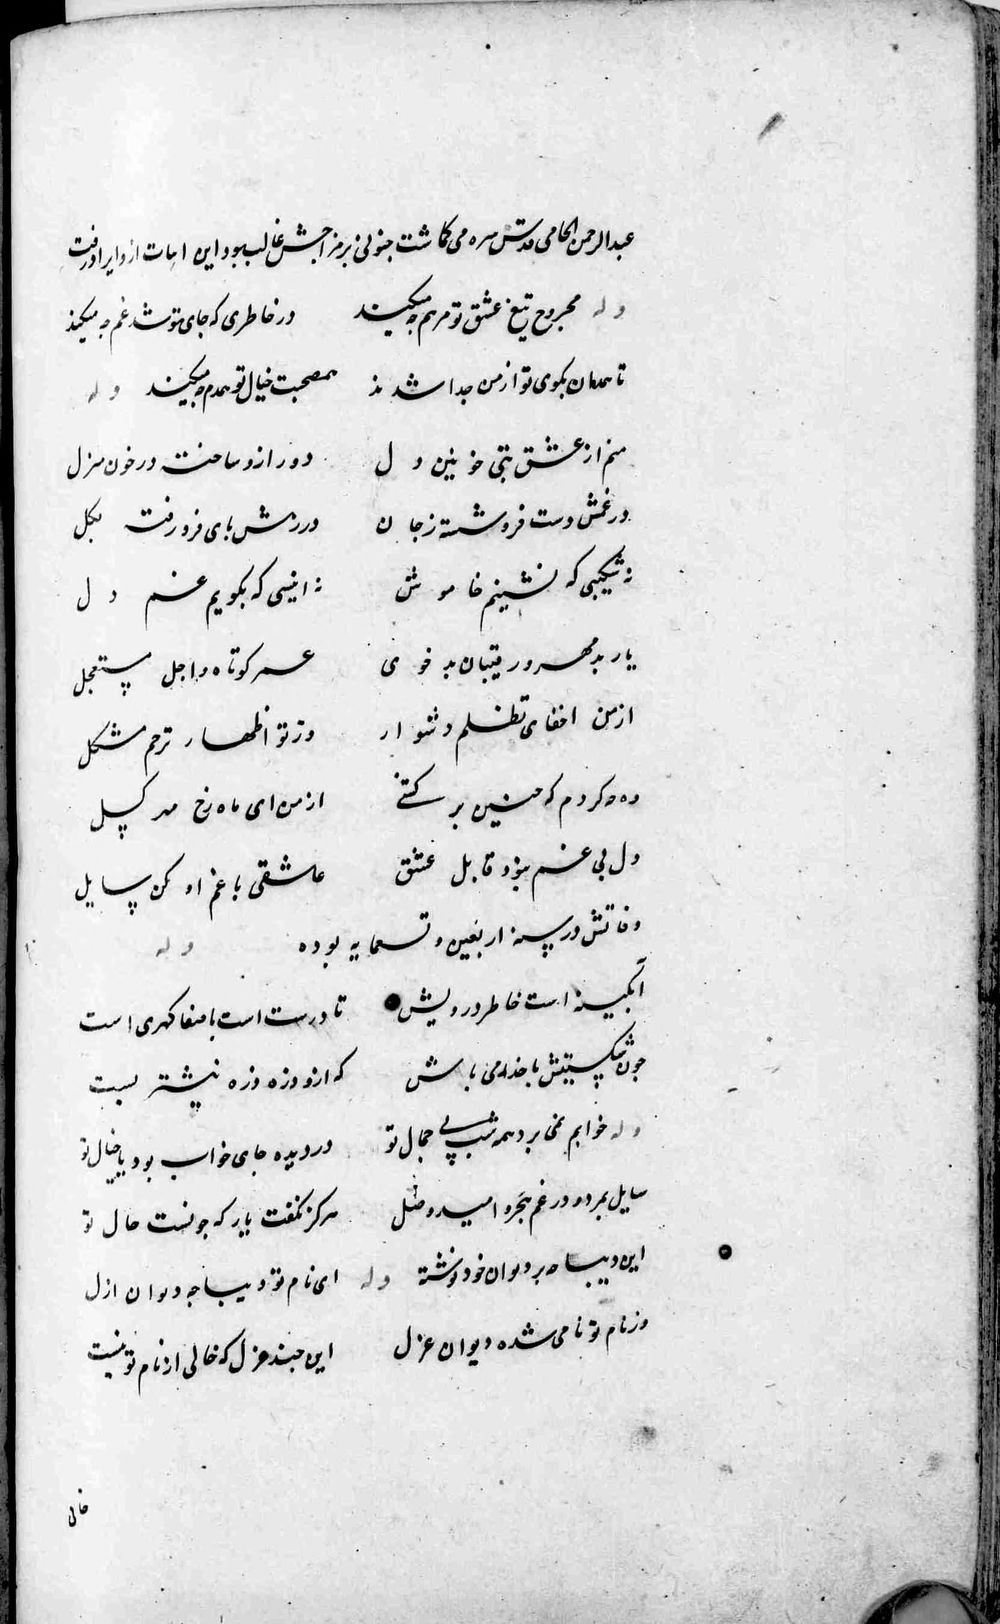 عبدالرحمن الجامی قدس سره می کاشت جنونی بر مزاجش غالب بود این ابیات ازو ایراد رفت
وله مجروح تیغ عشق تو مرهم چه میکند در خاطری که جای تو شد غم چه میکند
تا همدمان بکوی تو از من جدا شدند مصحبت خیال تو همدم چه میکند وله
منم از عشق بتی خونین دل دور ازو ساخته در خون منزل
در غمش دست فروشسته ز جان در رهش پای فرو رفته بگل
نه شکیبی که نشینم خاموش نه انیسی که بگویم غم دل
یار بدمهر و رقیبان بدخوی عمر کوتاه و اجل مستعجل
از من اخفای تظلم دشوار وز تو اظهار ترحم مشکل
وه چه کردم که چنین برگشتی از من ای ماه رخ مهر گسل
دل بی غم نبود قابل عشق عاشقی با غم او کن سایل
وفاتش در سنه اربعین و تسعمایه بوده وله
آبگینه است خاطر درویش تا درست است با صفا گهری است
چون شکستیش با خدا می باش که ازو ذره ذره نیشتر یست
وله خوابم نمی برد همه شب بی جمال تو در دیده جای خواب بود یا خیال تو
سایل بمرد در غم هجر و امید وصل هرگز نگفت یار که چونست حال تو
این دیباچه بر دیوان خود نوشته وله ای نام تو دیباچه دیوان ازل
وز نام تو نامی شده دیوان غزل این چند غزل که خالی از نام تو نیست
خالی